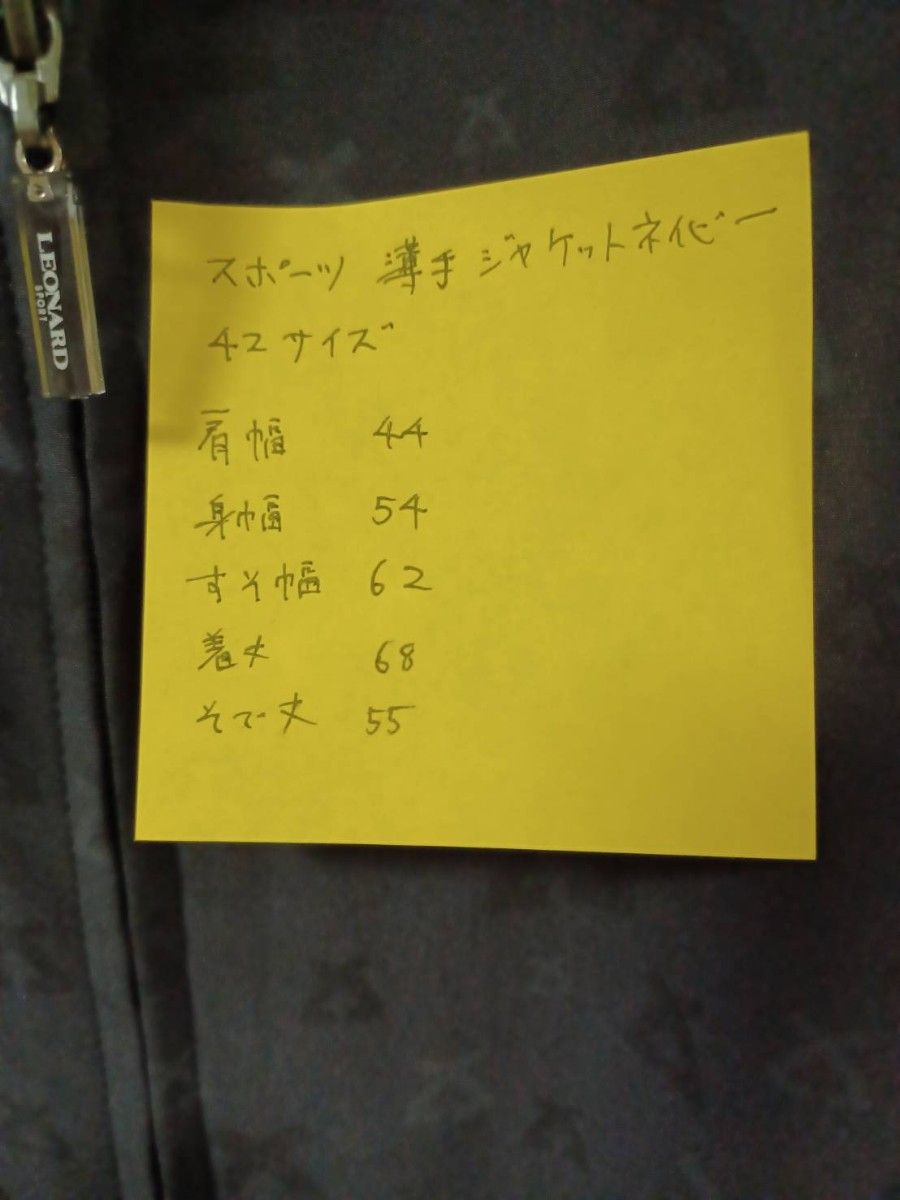 LEONARD
SPORT
スポーツ 薄手 ジャケットネイビー
42サイズ
肩幅 44
身幅 54
すそ幅 62
着丈 68
そで丈 55